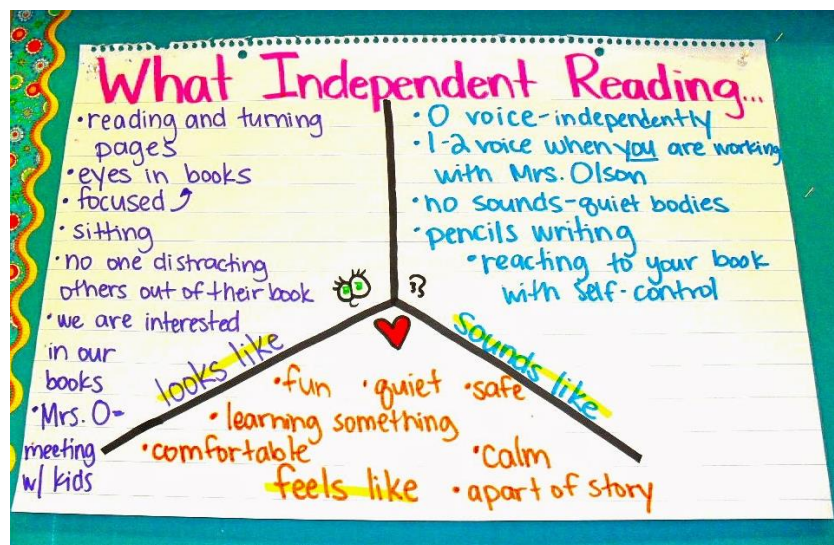 What Independent Reading...
•reading and turning
pages
•eyes in books
•focused
•sitting
•no one distracting
others out of their book
•we are interested
in our
books
•Mrs. O-
meeting
w/ kids
looks like
•0 voice-independently
•1-2 voice when you are working
with Mrs. Olson
•no sounds-quiet bodies
•pencils writing
•reacting to your book
with self-control
sounds like
•fun •quiet •safe
•learning something
•comfortable •calm
feels like •apart of story